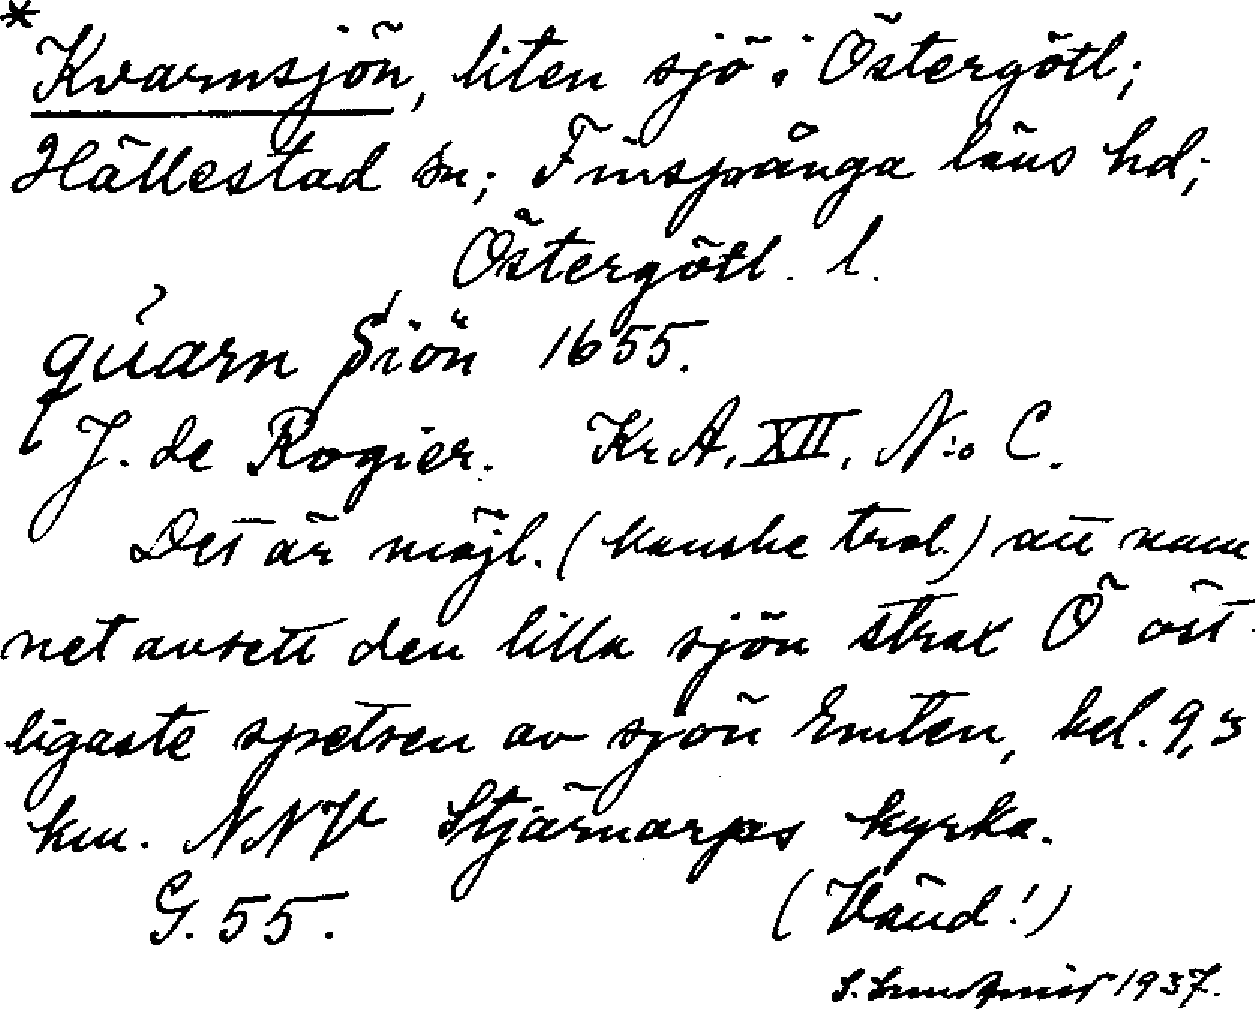 * Kvarnsjön, liten sjö i Östergötl;
Hällestad sn; Finspånga läns hd;
Östergötl. l.
quarn Siön 1655.
J. de Rogier. KrA, XII, N:o C.
Det är möjl. (kanske trol.) att nam
net avsett den lilla sjön strax Ö öst-
ligaste spetsen av sjön Emten, bel. 9,3
km. NNV Stjärnarps kyrka.
G. 55. (Vänd!)
1937.